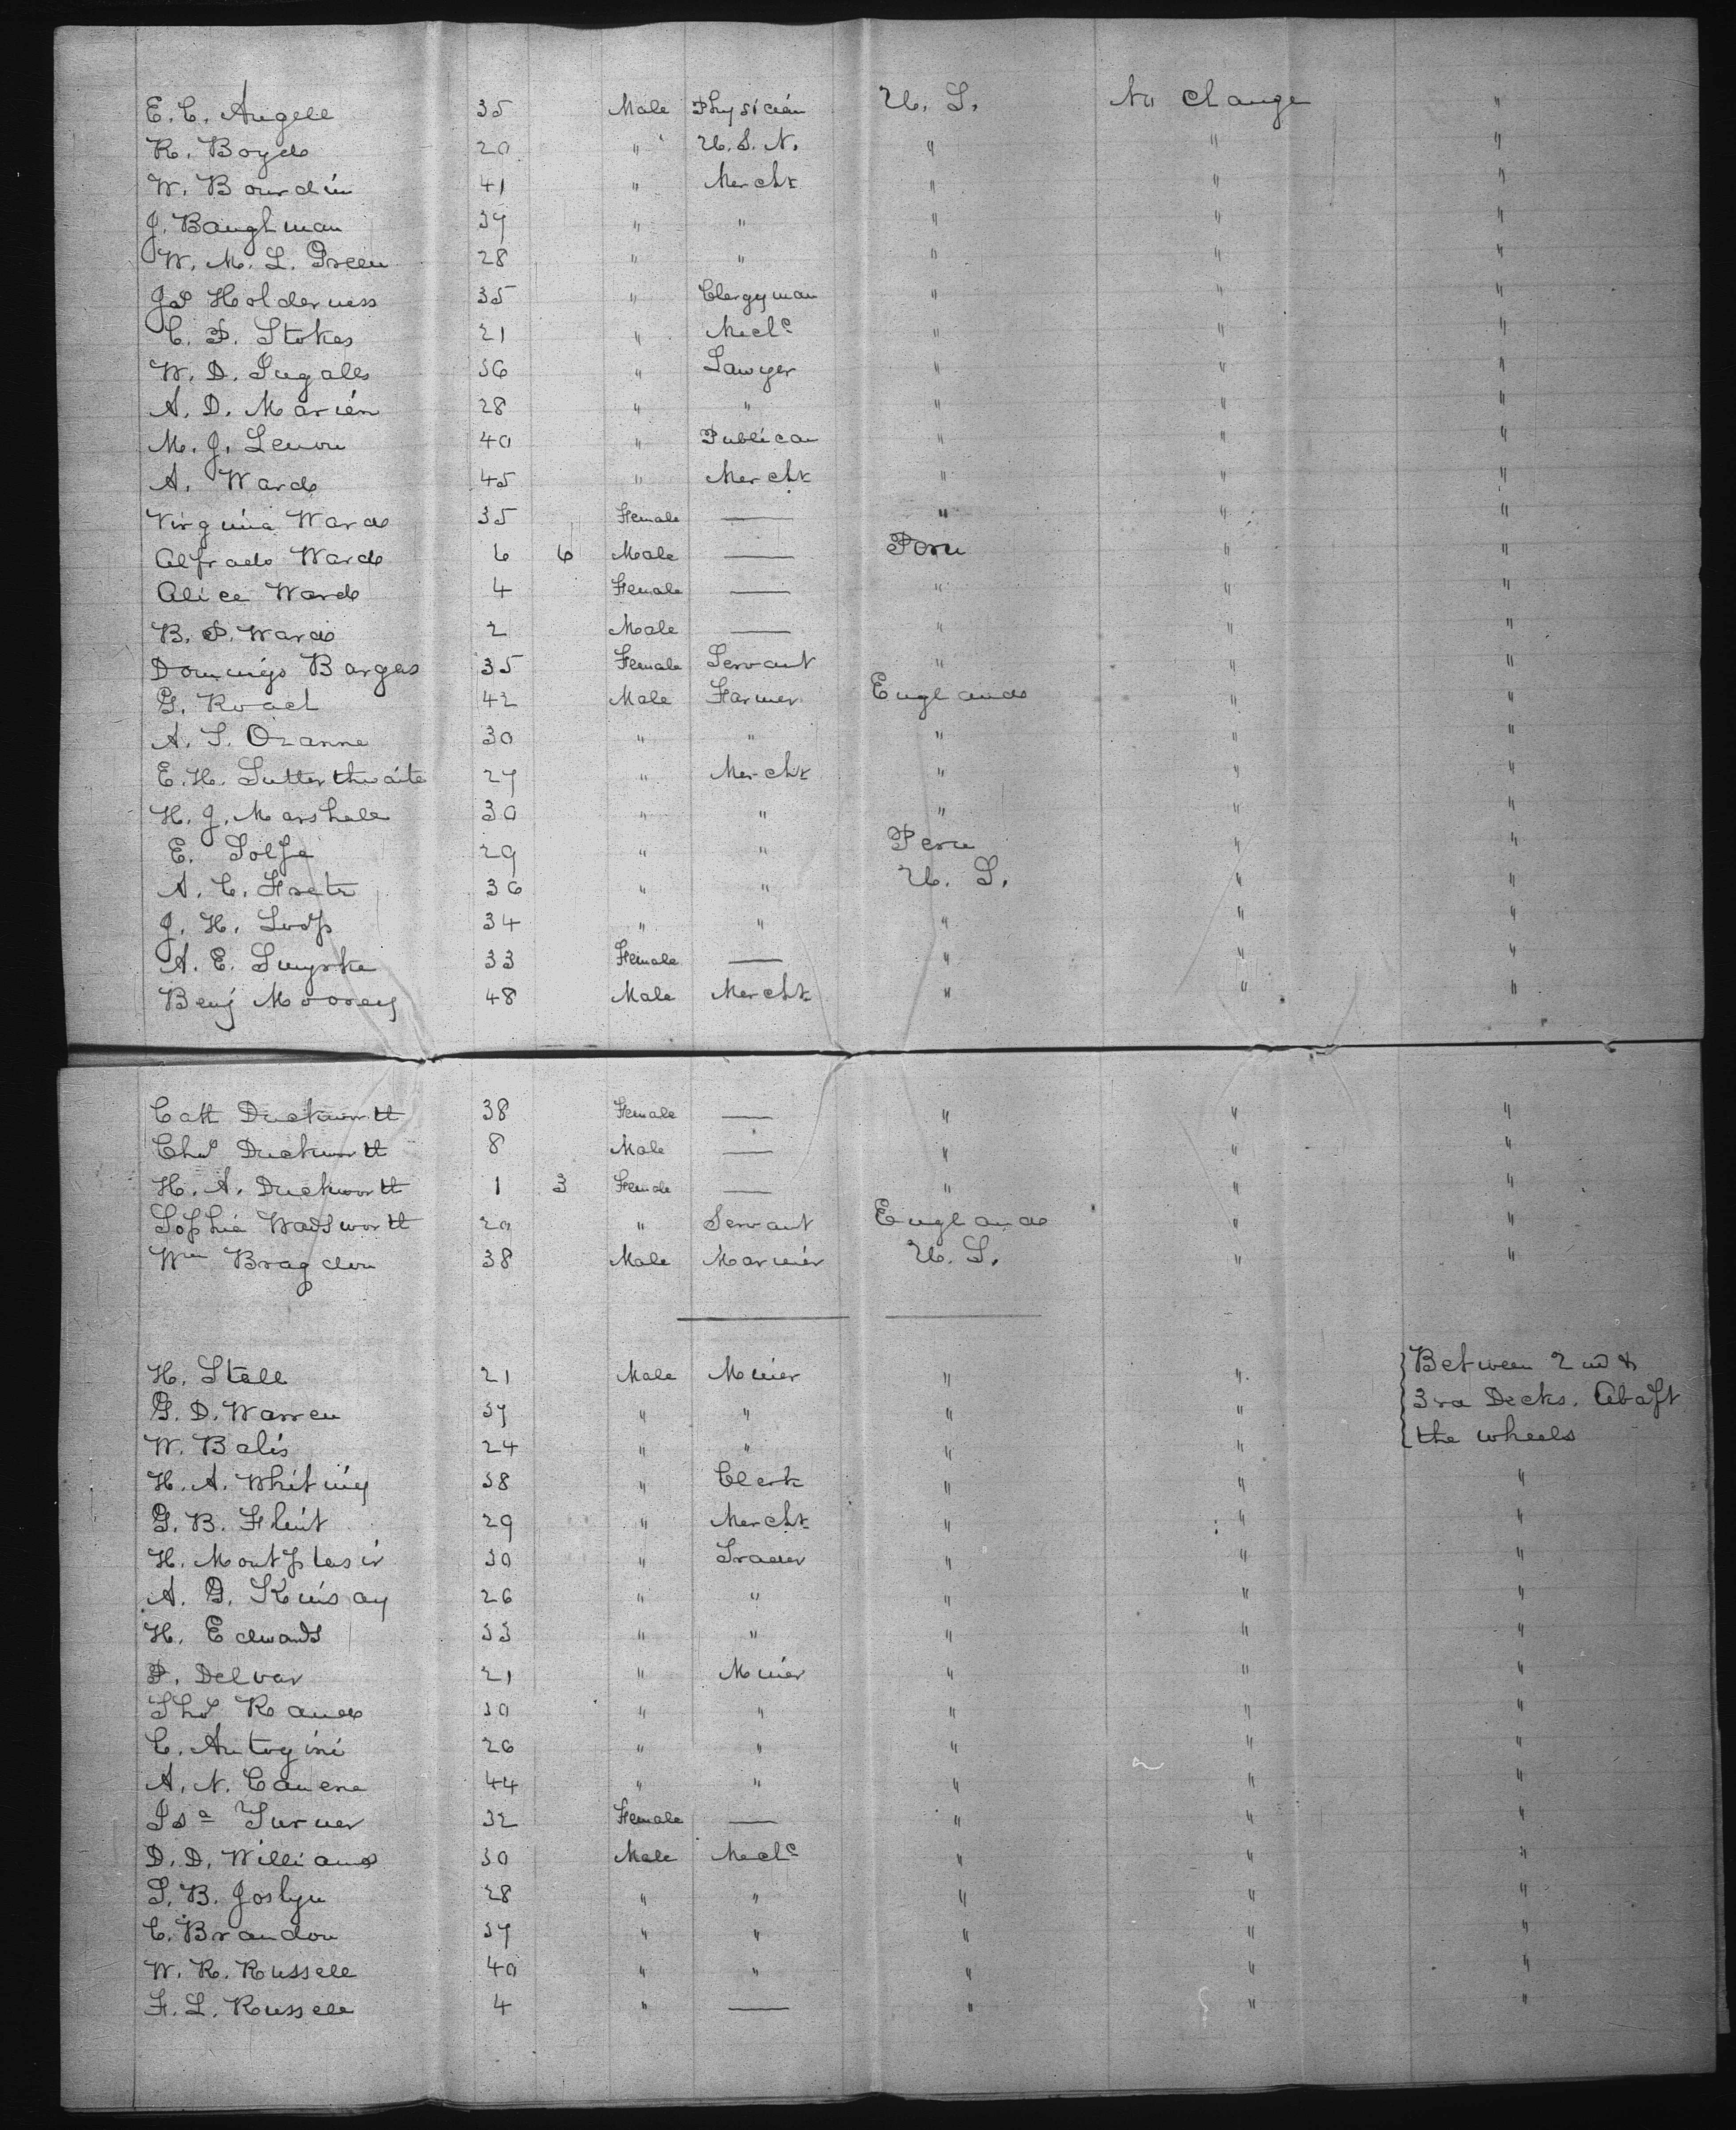 E. C. Angell 35 Male Physician U. S. No Change "
R. Boyd 20 " U. S. N. " " "
W. Bourdin 41 " Mercht " " "
J. Baughman 37 " " " " "
W. M. L. Green 28 " " " " "
Jas Holderness 35 " Clergyman " " "
C. P. Stokes 21 " Mechc " " "
W. D. Ingalls 36 " Lawyer " " "
A. D. Marién 28 " " " " "
M. J. Lenon 40 " Publican " " "
A. Ward 45 " Mercht " " "
Virginia Ward 35 Female — " " "
Alfrado Ward 6 6 Male — Peru " "
Alice Ward 4 Female — " " "
B. P. Ward 2 Male — " " "
Domingo Bargas 35 Female Servant " " "
G. Roach 42 Male Farmer England " "
A. S. Ozanne 30 " " " " "
E. H. Sutterthwaite 27 " Mercht " " "
H. J. Marshall 30 " " " " "
E. 29 " " Peru " "
A. C. 36 " " U. S. " "
J. H. 34 " " " " "
A. E. 33 Female — " " "
Benj Moorey 48 Male Mercht " " "
Cath Duckworth 38 Female — " " "
Chas Duckworth 8 Male — " " "
H. A. Duckworth 1 3 Female — " " "
Sophia Wadsworth 20 " Servant England " "
Wm Bragdon 38 Male Mariner U. S. " "
H. Stall 21 Male Miner " " Between 2nd &
G. D. Warren 37 " " " " 3rd Decks. Abaft
W. Balis 24 " " " " the wheels
H. A. Whitney 38 " Clerk " " "
G. B. Flint 29 " Mercht " " "
H. Montplasir 30 " Trader " " "
A. G. Kinsay 26 " " " " "
H. Edwards 33 " " " " "
P. Delvar 21 " Miner " " "
Thos Rand 30 " " " " "
C. Antogini 26 " " " " "
A. N. Canena 44 " " " " "
Isa Turner 32 Female — " " "
D. D. Williams 30 Male Mechc " " "
S. B. Joslyn 28 " " " " "
C. Brandon 37 " " " " "
W. R. Russell 40 " " " " "
F. L. Russell 4 " — " " "